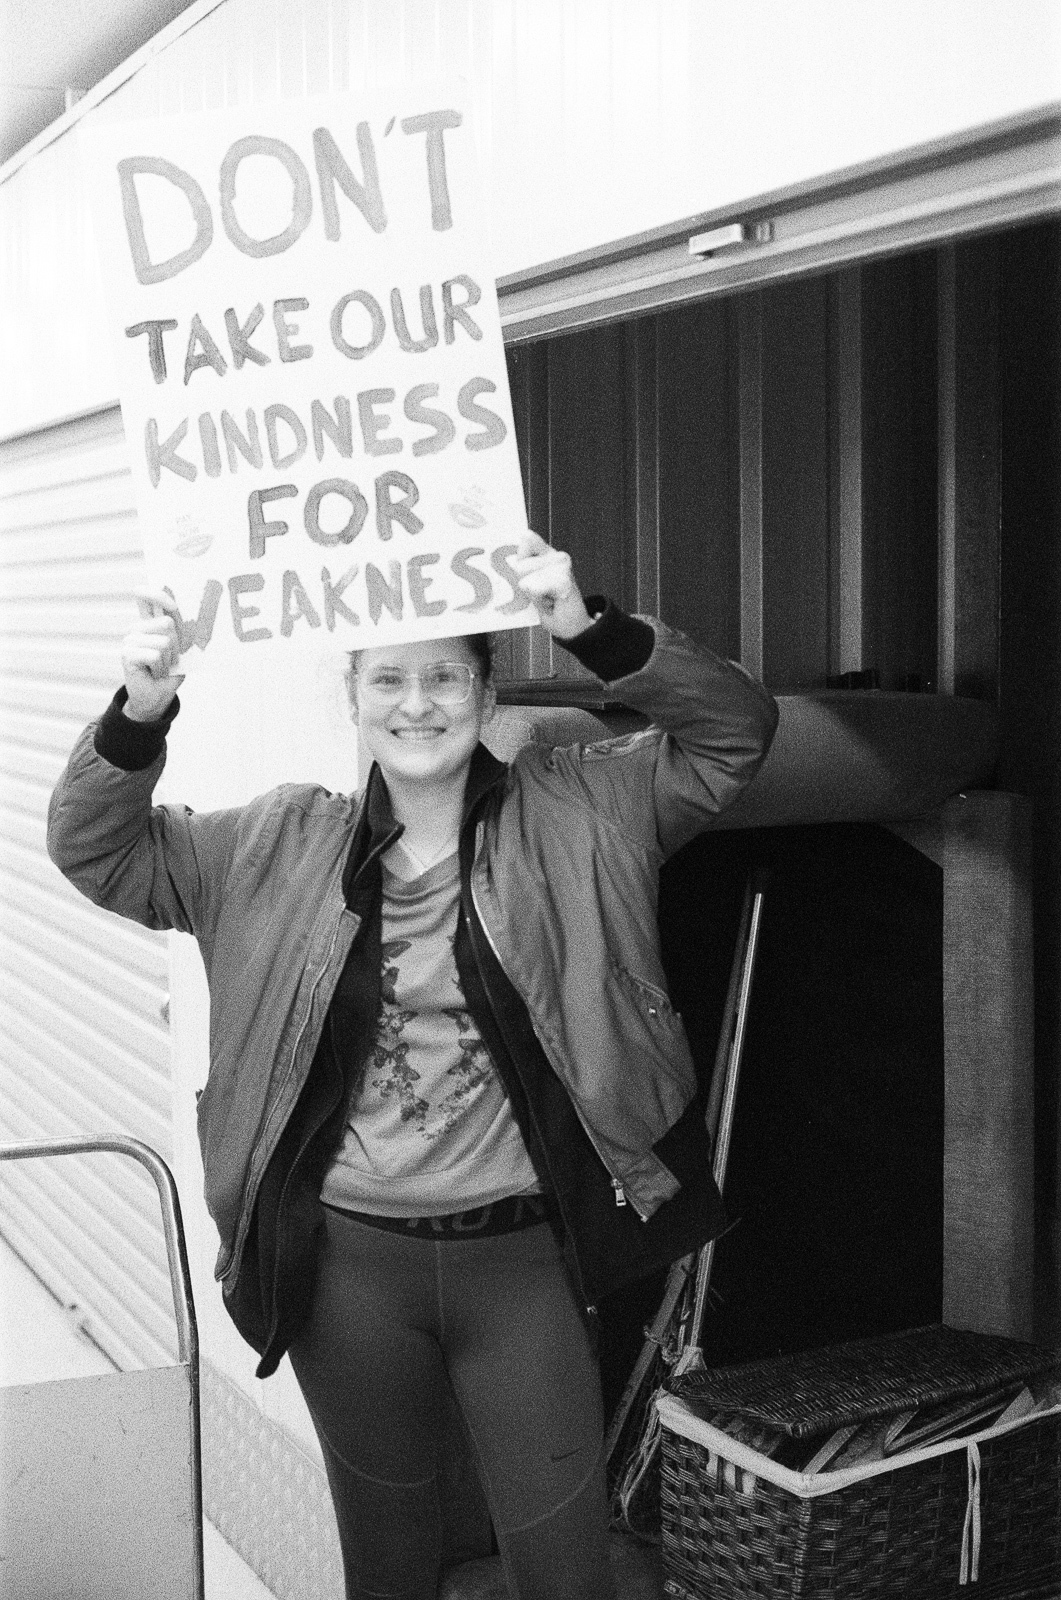 DON'T
TAKE OUR
KINDNESS
FOR
WEAKNESS